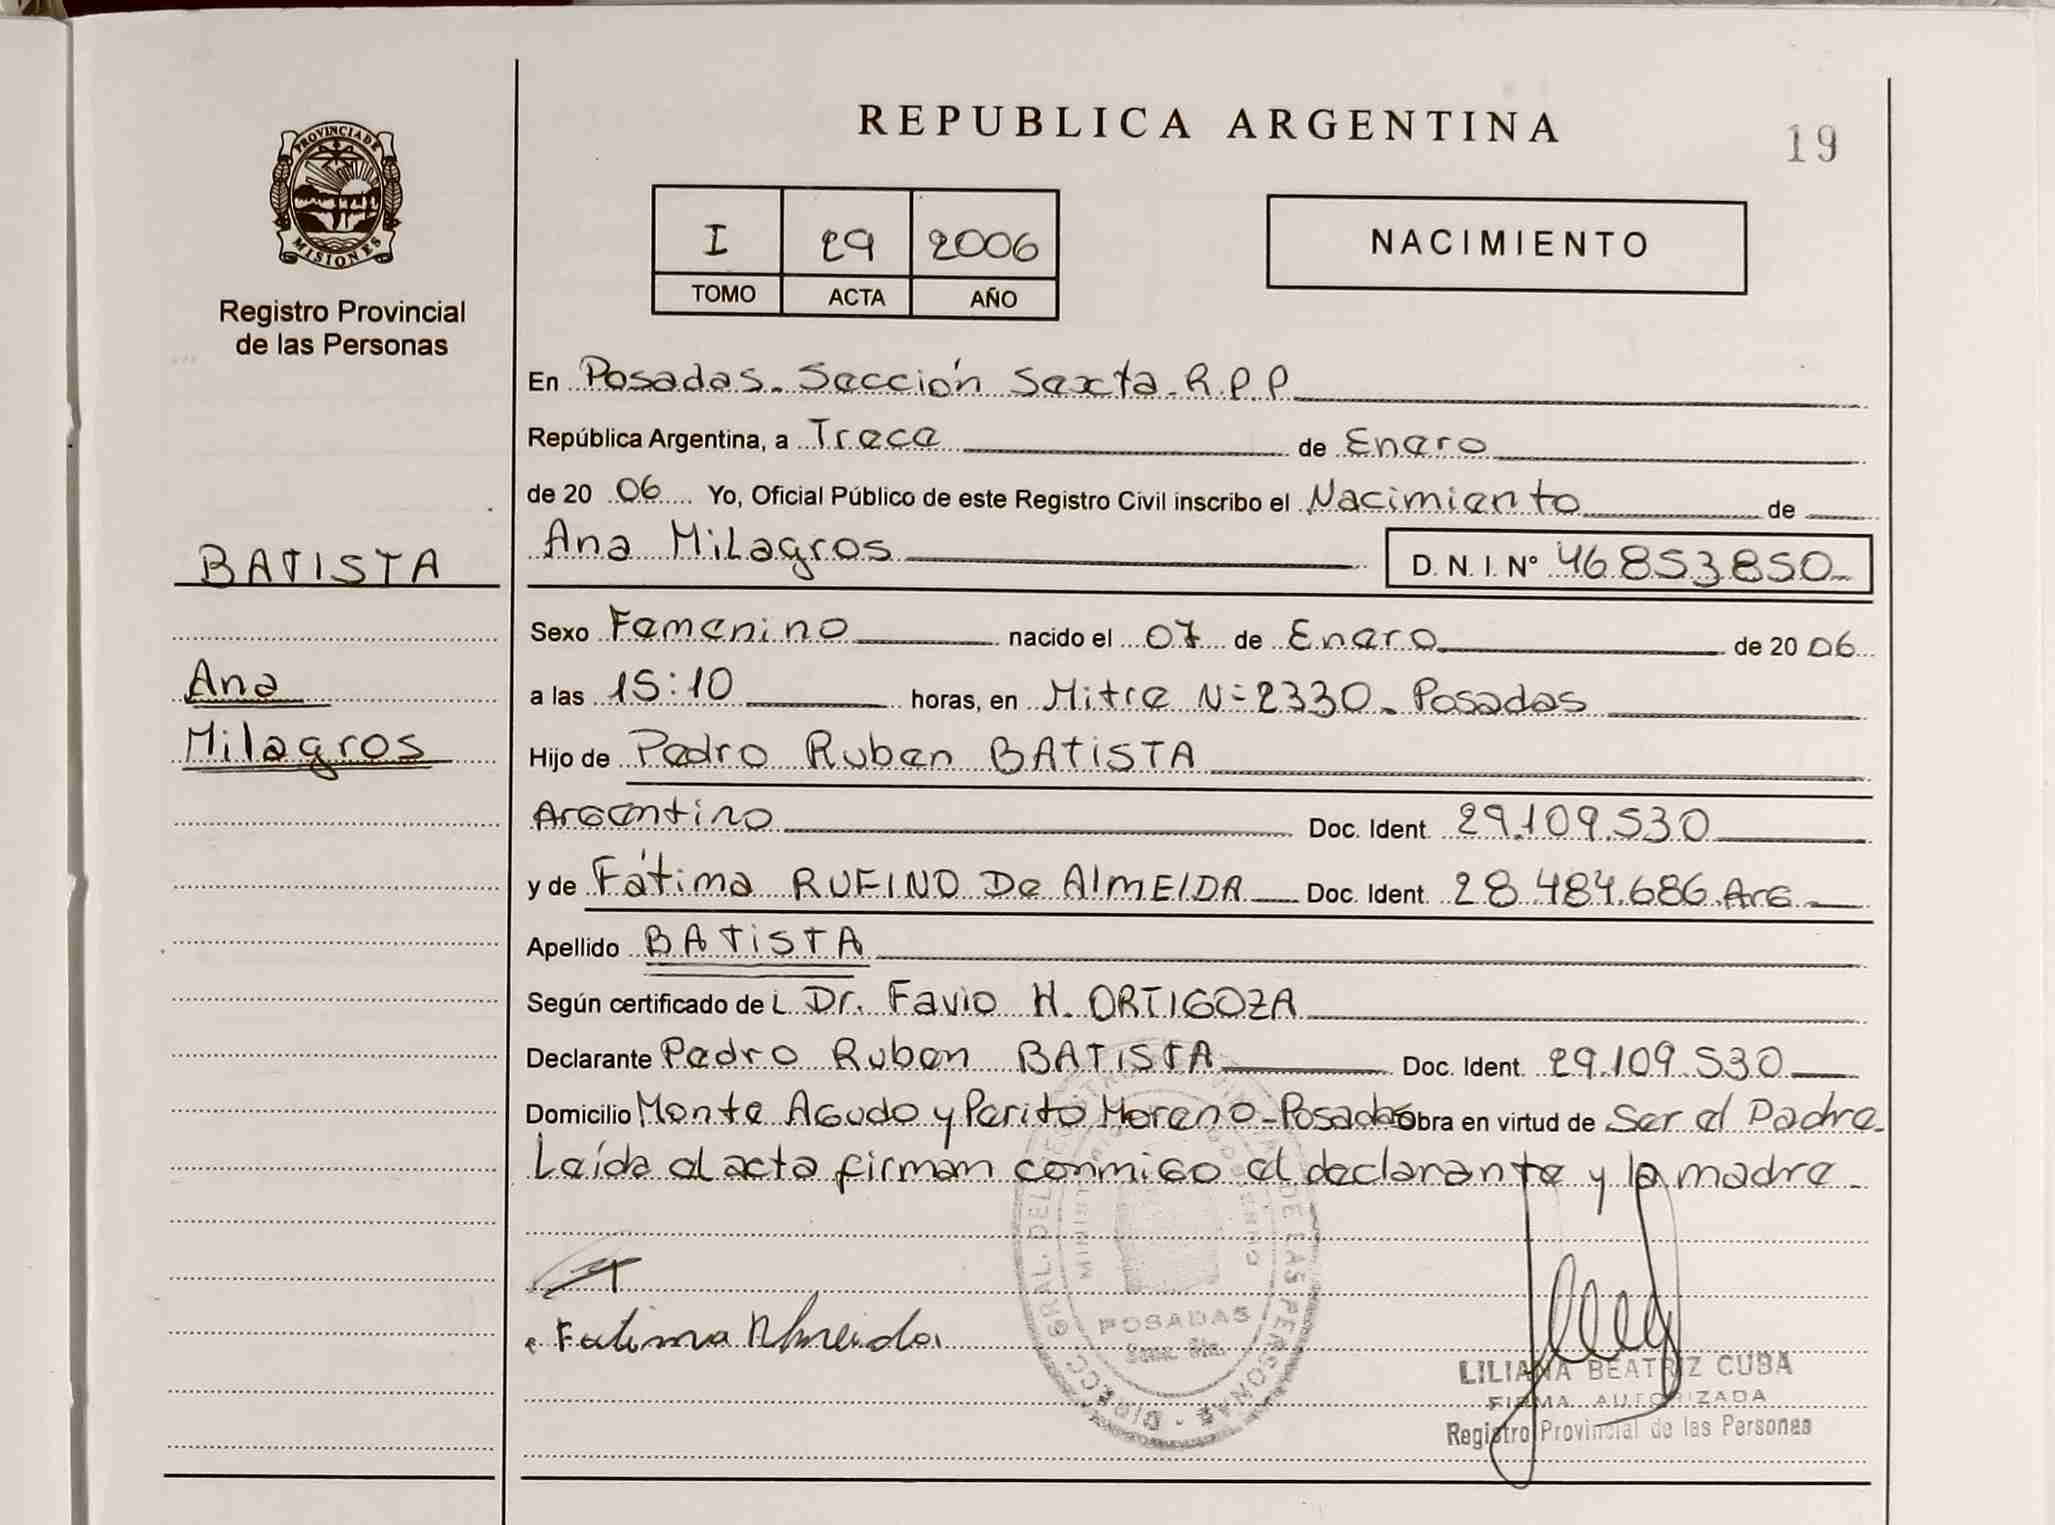 REPUBLICA ARGENTINA
19
PROVINCIA DE
MISIONES
Registro Provincial
de las Personas
I 29 2006
TOMO ACTA AÑO
NACIMIENTO
En Posadas. Sección Sexta. R.P.P.
República Argentina, a Trece de Enero
de 20 06 Yo, Oficial Público de este Registro Civil inscribo el Nacimiento de
Ana Milagros D. N. I. N° 46.853.850
BATISTA
Ana
Milagros
Sexo Femenino nacido el 07 de Enero de 20 06
a las 15:10 horas, en Mitre N=2330. Posadas
Hijo de Pedro Ruben BATISTA
Argentino Doc. Ident. 29.109.530
y de Fátima RUFINO De AlMEIDA Doc. Ident. 28.484.686.Arg.
Apellido BATISTA
Según certificado de L Dr. Favio H. ORTIGOZA
Declarante Pedro Ruben BATISTA Doc. Ident. 29.109.530
Domicilio Monte Agudo y Perito Moreno-Posadas Obra en virtud de Ser el Padre.
Leída el acta firman conmigo el declarante y la madre
Fatima Almeida
POSADAS
LILIANA BEATRIZ CUBA
FIRMA AUTORIZADA
Registro Provincial de las Personas